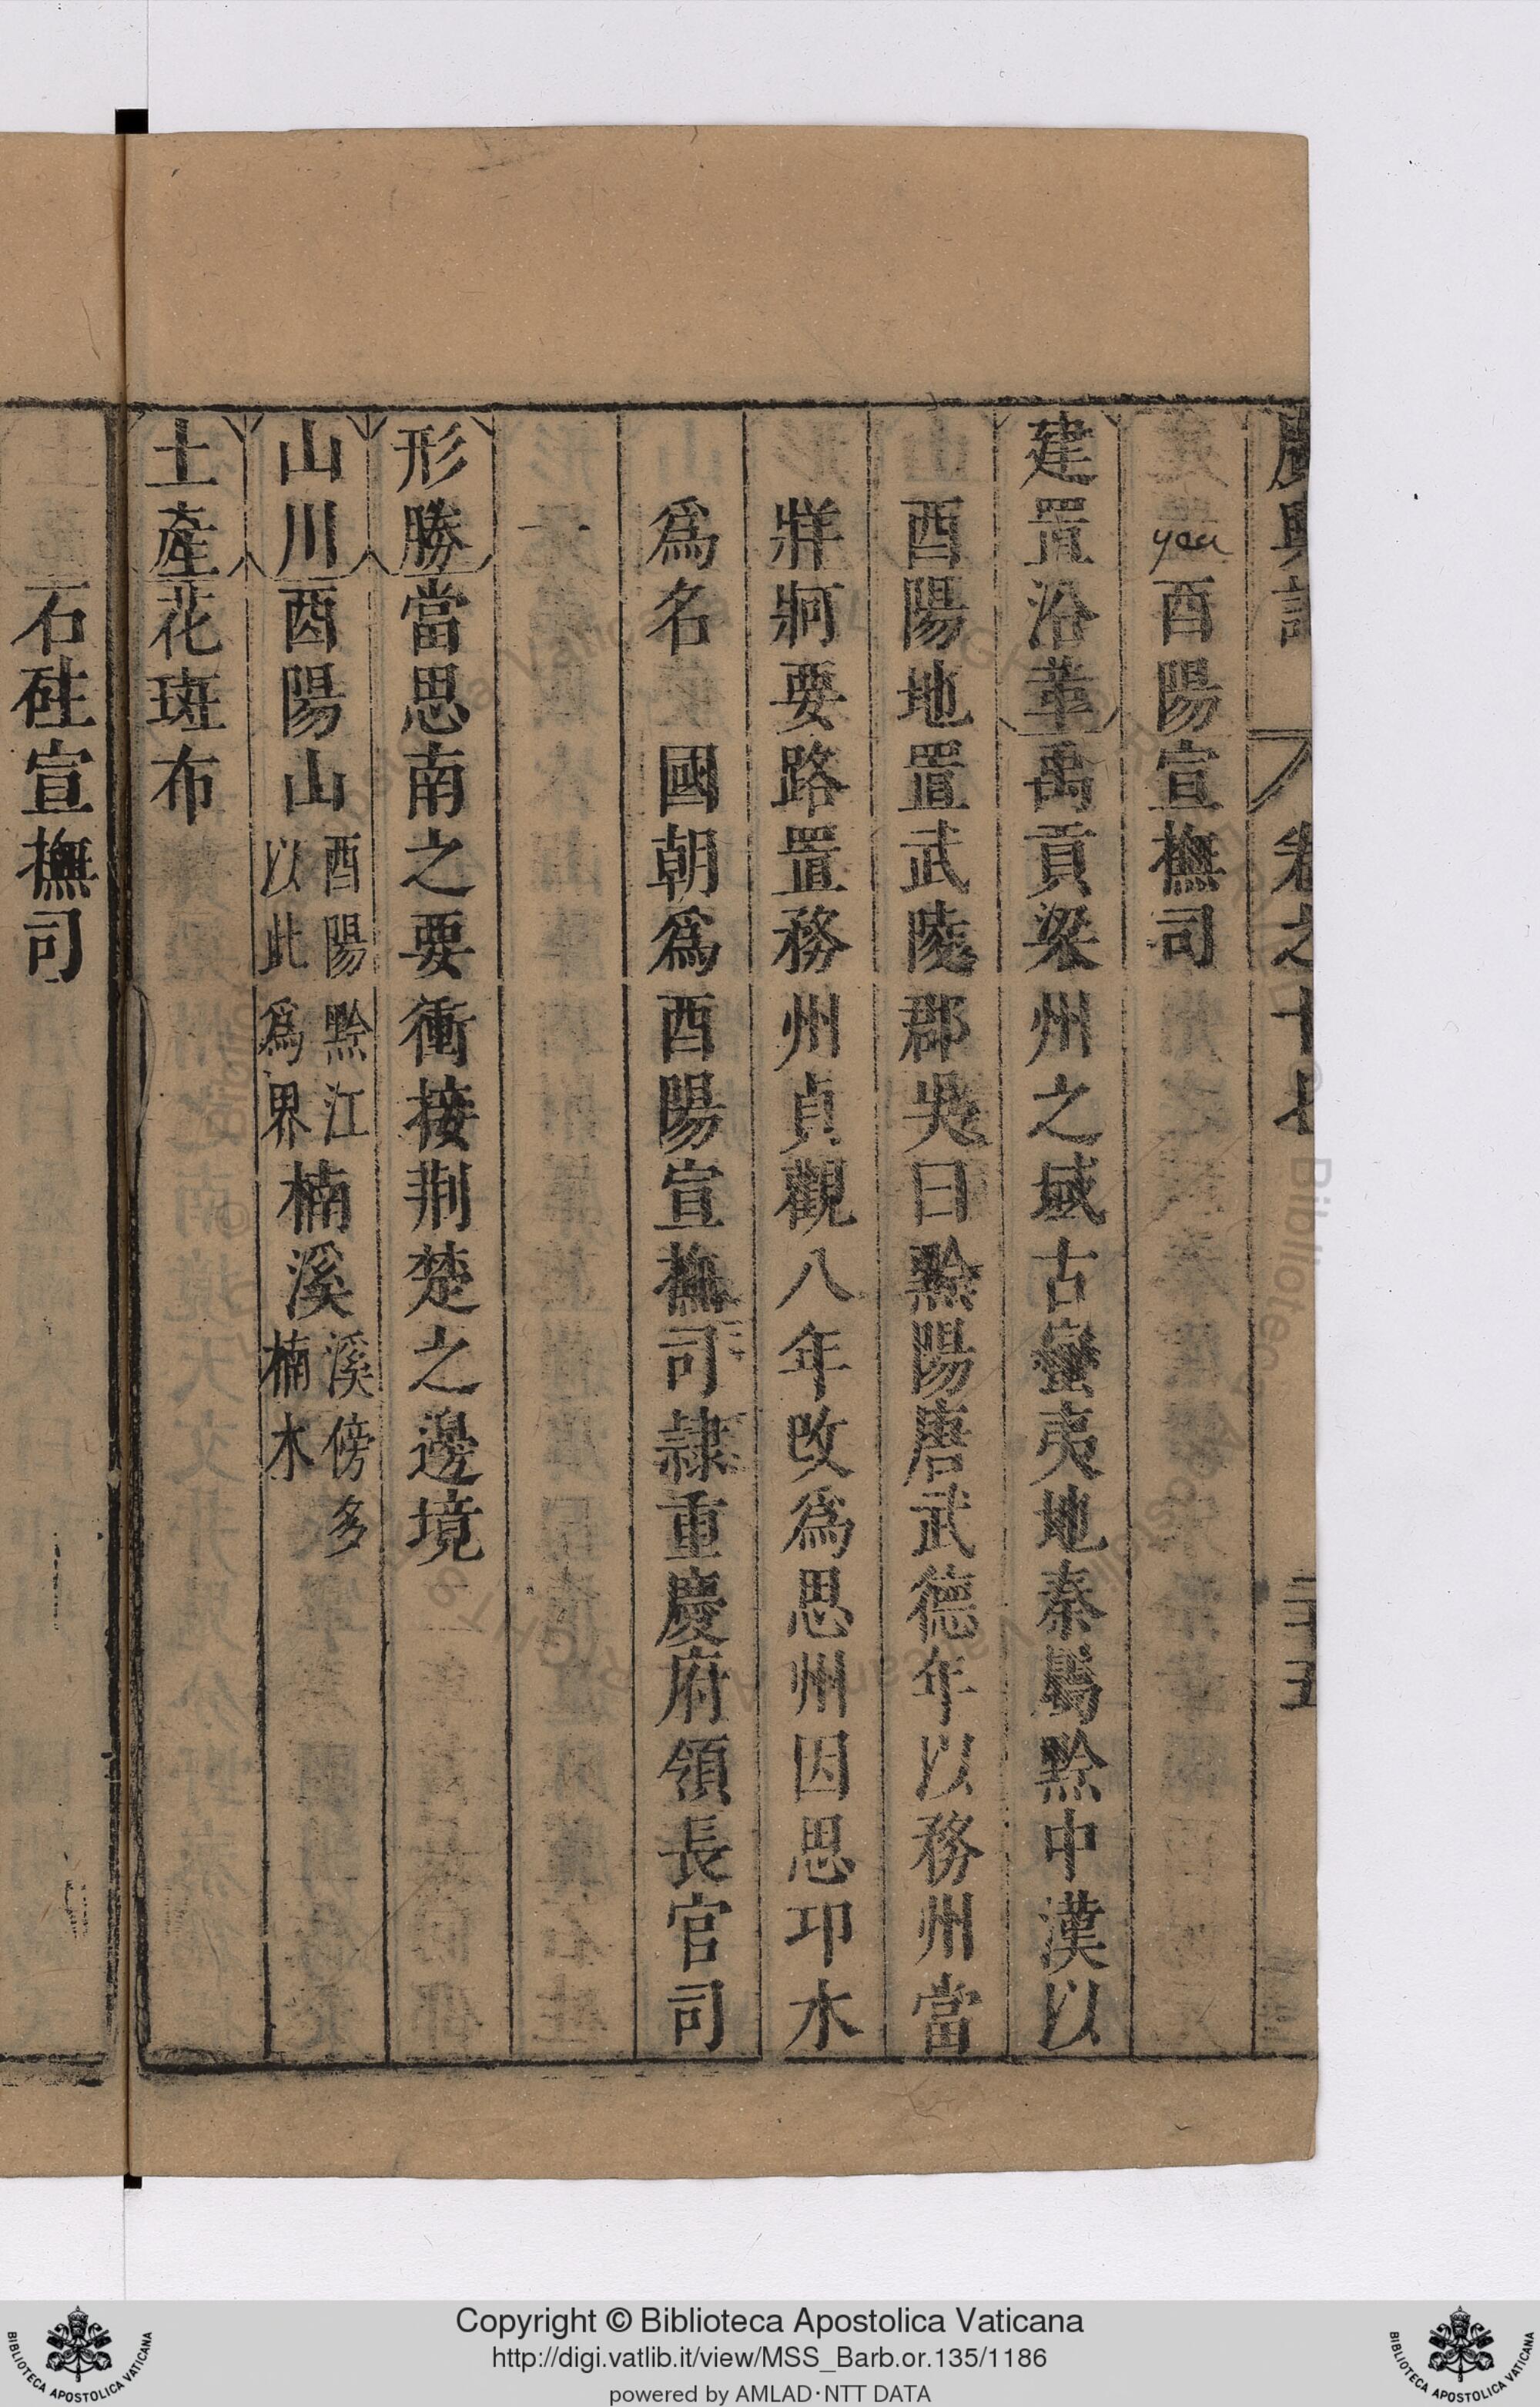 廣輿記 卷之十七 二十五
yeu
酉陽宣撫司
建置沿革禹貢梁州之域古蠻夷地秦屬黔中漢以
酉陽地置武陵郡吳曰黔陽唐武德年以務州當
牂牁要路置務州貞觀八年改爲思州因思卭水
爲名 國朝爲酉陽宣撫司隷重慶府領長官司
一
形勝當思南之要衝接荆楚之邊境
山川酉陽山酉陽黔江以此爲界楠溪溪傍多楠木
土產花斑布
石砫宣撫司
Copyright © Biblioteca Apostolica Vaticana
http://digi.vatlib.it/view/MSS_Barb.or.135/1186
powered by AMLAD·NTT DATA
BIBLIOTECA APOSTOLICA VATICANA
BIBLIOTECA APOSTOLICA VATICANA